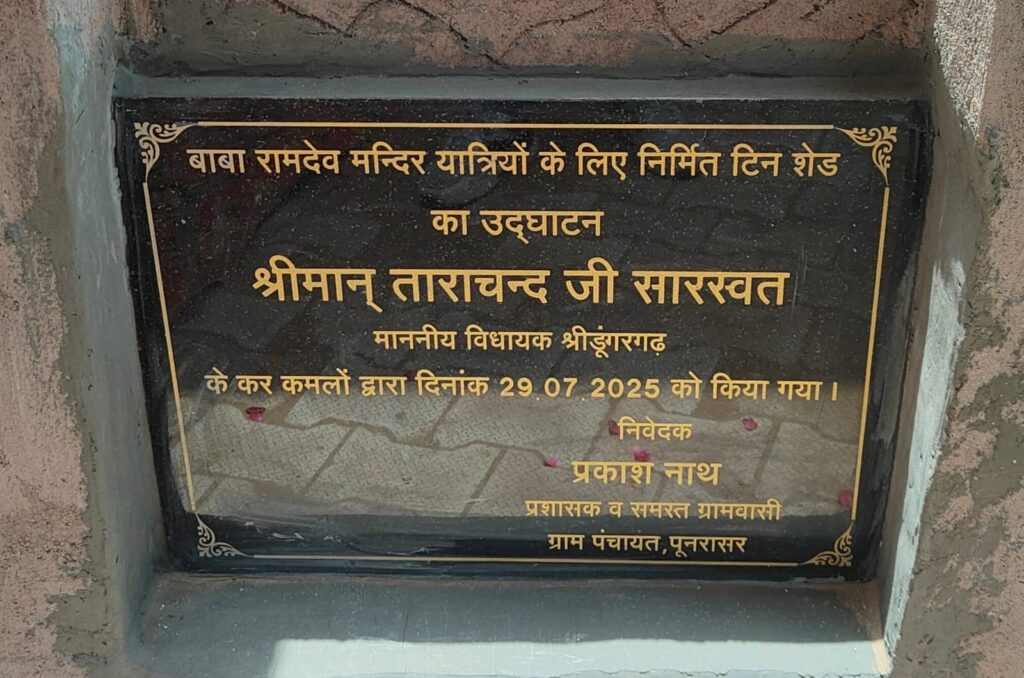 बाबा रामदेव मन्दिर यात्रियों के लिए निर्मित टिन शेड
का उद्‌घाटन
श्रीमान् ताराचन्द जी सारस्वत
माननीय विधायक श्रीडूंगरगढ़
के कर कमलों द्वारा दिनांक 29.07.2025 को किया गया।
निवेदक
प्रकाश नाथ
प्रशासक व समस्त ग्रामवासी
ग्राम पंचायत,पूनरासर